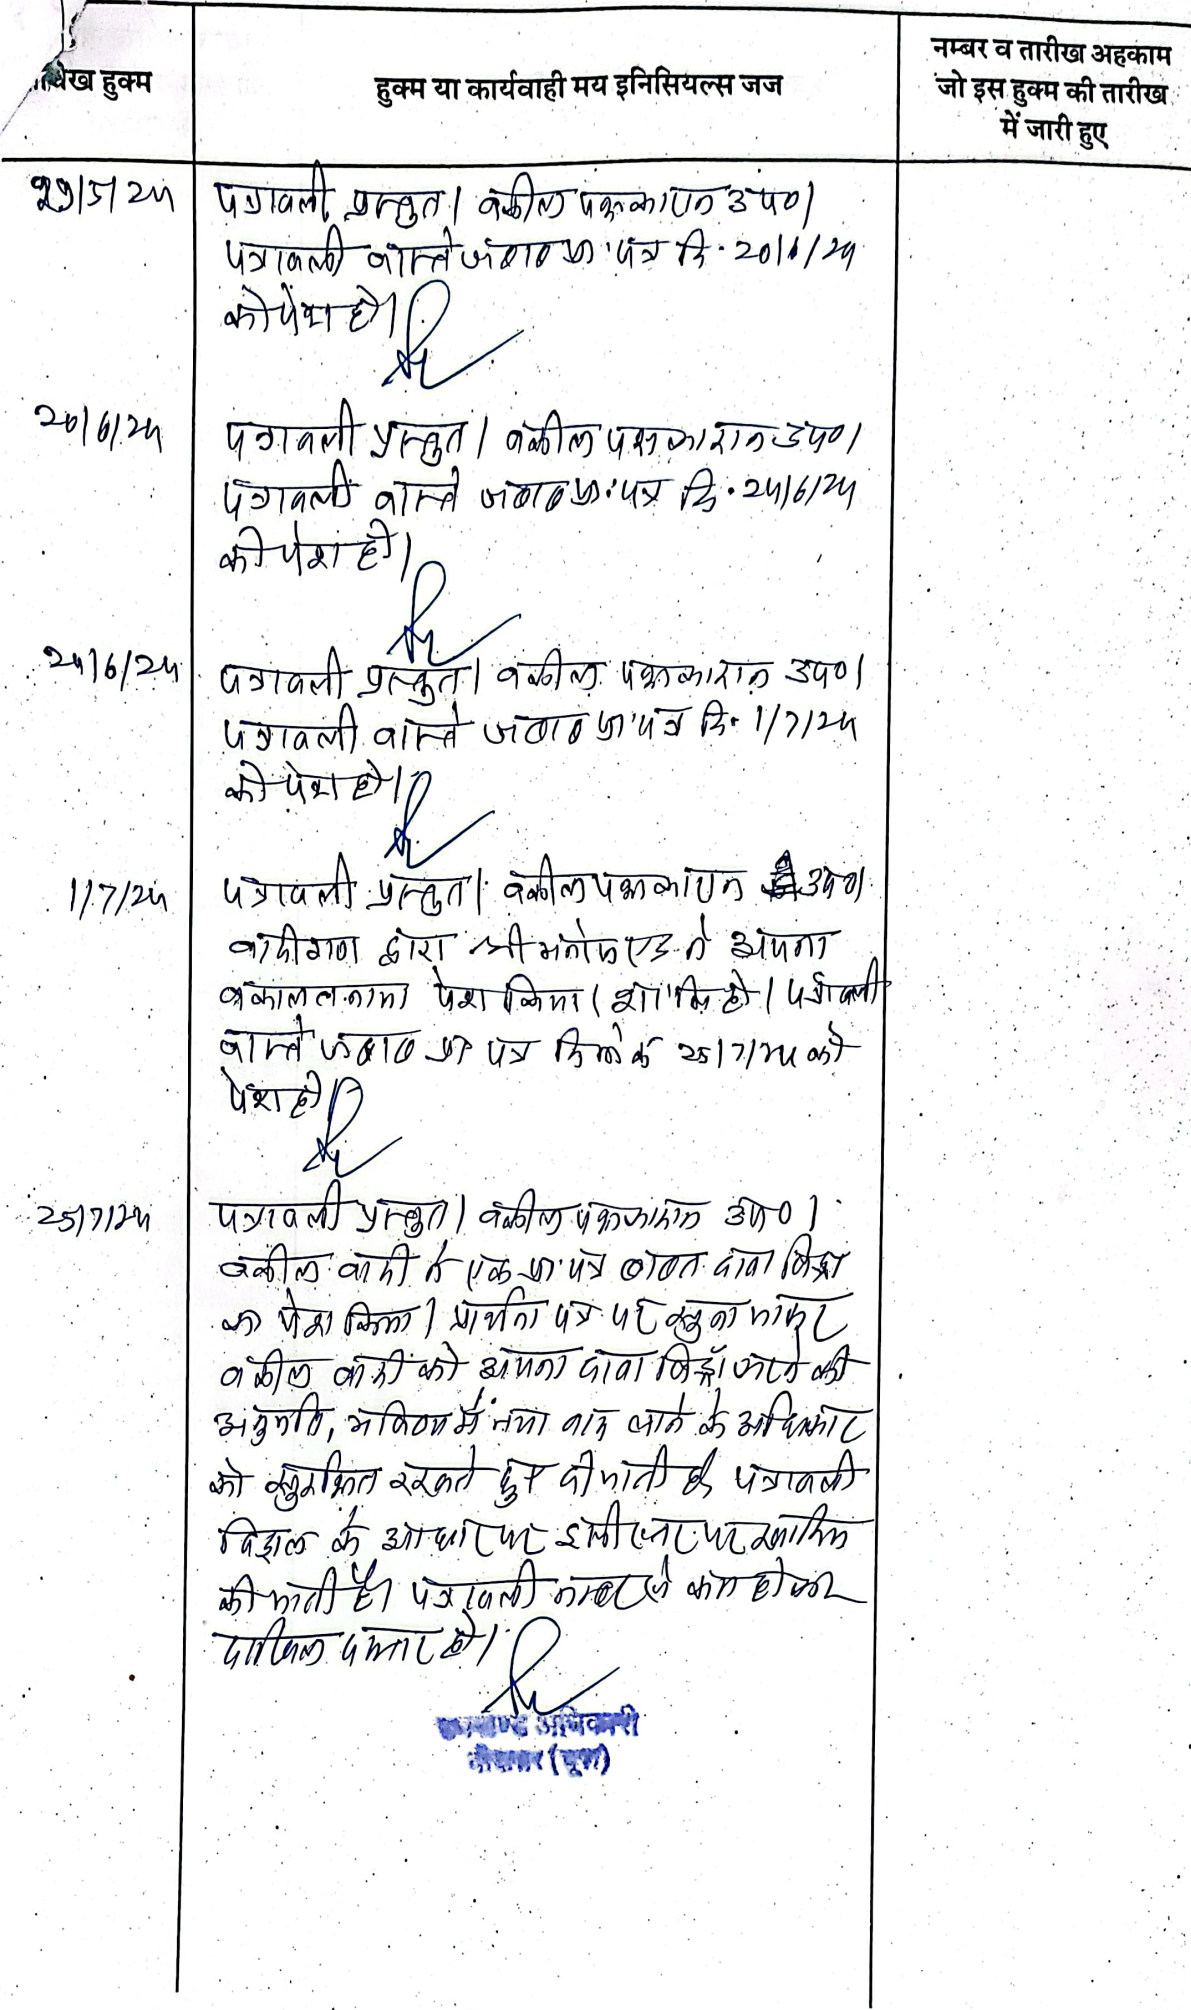 तारीख हुक्म
हुक्म या कार्यवाही मय इनिसियल्स जज
नम्बर व तारीख अहकाम
जो इस हुक्म की तारीख
में जारी हुए
29/5/24
पत्रावली प्रस्तुत। वकील पक्षकारान उप०।
पत्रावली वास्ते जवाब प्रा.पत्र दि. 20/6/24
को पेश हो।
20/6/24
पत्रावली प्रस्तुत। वकील पक्षकारान उप०।
पत्रावली वास्ते जवाब प्रा.पत्र दि. 24/6/24
को पेश हो।
24/6/24
पत्रावली प्रस्तुत। वकील पक्षकारान उप०।
पत्रावली वास्ते जवाब प्रा.पत्र दि. 1/7/24
को पेश हो।
1/7/24
पत्रावली प्रस्तुत। वकील पक्षकारान उप०।
वादीगण द्वारा श्री एड. ने अपना
वकालतनामा पेश किया। शामिल हो। पत्रावली
वास्ते जवाब प्रा पत्र दिनांक 25/7/24 को
पेश हो।
25/7/24
पत्रावली प्रस्तुत। वकील पक्षकारान उप०।
वकील वादी ने एक प्रा.पत्र बाबत दावा विड्रा
का पेश किया। प्रार्थना पत्र पर सुना जाकर
वकील वादी को अपना दावा विड्रॉ करने की
अनुमति, भविष्य में नया वाद लाने के अधिकार
को सुरक्षित रखते हुए दी जाती है। पत्रावली
विड्राल के आधार पर इसी स्तर पर खारिज
की जाती है। पत्रावली नम्बर से कम होकर
दाखिल दफ्तर हो।
उपखण्ड अधिकारी
बीदासर (चूरू)